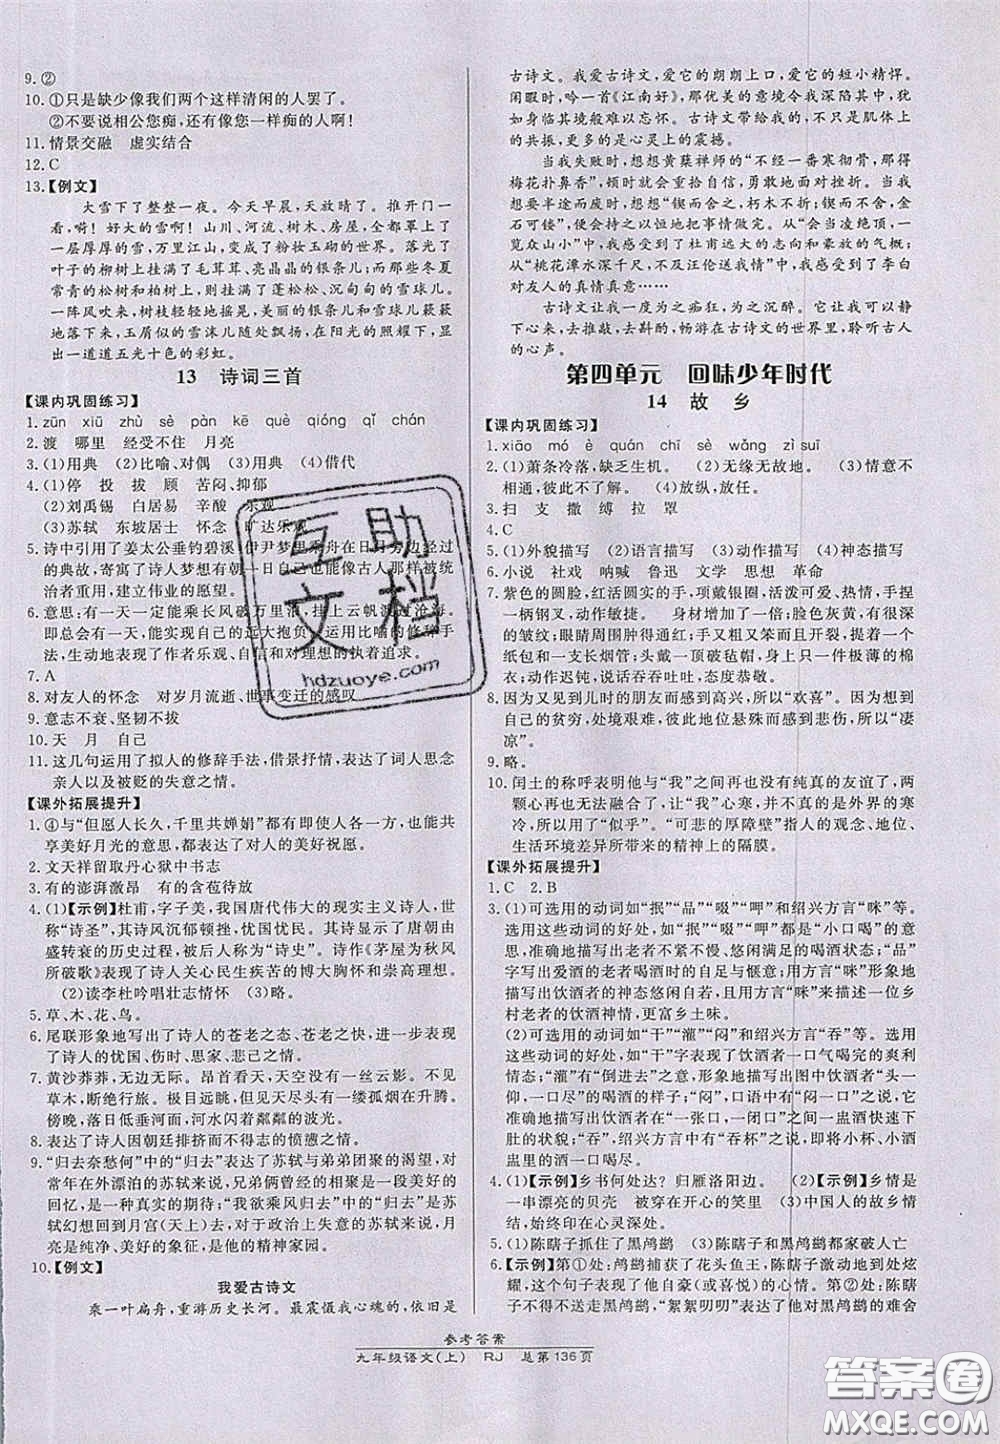 9. ②
10. ①只是缺少像我们两个这样清闲的人罢了。
②不要说相公您痴,还有像您一样痴的人啊!
11. 情景交融 虚实结合
12. C
13.【例文】
大雪下了整整一夜。今天早晨,天放晴了。推开门一
看,嗬!好大的雪啊!山川、河流、树木、房屋,全都罩上了
一层厚厚的雪,万里江山,变成了粉妆玉砌的世界。落光了
叶子的柳树上挂满了毛茸茸、亮晶晶的银条儿;而那些冬夏
常青的松树和柏树上,则挂满了蓬松松、沉甸甸的雪球儿。
一阵风吹来,树枝轻轻地摇晃,美丽的银条儿和雪球儿簌簌
地落下来,玉屑似的雪沫儿随处飘扬,在阳光的照耀下,显
出一道道五光十色的彩虹。
13 诗词三首
【课内巩固练习】
1. zūn xiū zhù sè pàn kē què qióng qǐ chán
2. 渡 哪里 经受不住 月亮
3. (1)用典 (2)比喻、对偶 (3)用典 (4)借代
4. (1)停 投 拔 顾 苦闷、抑郁
(2)刘禹锡 白居易 辛酸 乐观
(3)苏轼 东坡居士 怀念 旷达乐观
5. 诗中引用了姜太公垂钓碧溪,伊尹梦里乘舟在日月旁边经过
的典故,寄寓了诗人梦想有朝一日自己也能像古人那样被统
治者重用,建立伟业的愿望。
6. 意思:有一天一定能乘长风破万里浪,挂上云帆渡过沧海。
即总会有一天,实现自己的远大抱负。运用比喻的修辞手
法,生动地表现了作者乐观、自信和对理想的执着追求。
7. A
8. 对友人的怀念 对岁月流逝、世事变迁的感叹
9. 意志不衰、坚韧不拔
10. 天 月 自己
11. 这几句运用了拟人的修辞手法,借景抒情,表达了词人思念
亲人以及被贬的失意之情。
【课外拓展提升】
1. ④与“但愿人长久,千里共婵娟”都想与各方的人一起,也能共
享美好月光的意思,都体现了作者的美好祝愿。
2. 文天祥留取丹心狱中书志
3. 有的澎湃激昂 有的含苞待放
4. (1)【示例】杜甫,字子美,我国唐代伟大的现实主义诗人,世
称“诗圣”,其诗风沉郁顿挫,忧国忧民。其诗显示了唐代由
盛转衰的历史过程,被后人称为“诗史”。诗作《茅屋为秋风
所破歌》表现了诗人关心民生疾苦的博大胸怀和崇高理想。
(2)读李杜吟唱壮志情怀 (3)略。
5. 草、木、花、鸟。
6. 尾联形象地写出了诗人的苍老之态、苍老之状,其中包含
了诗人的忧国、伤时、思家、悲己之情。
7. 黄沙莽莽,无边无际。昂首看天,天空没有一丝云影。不见
草木,断绝行旅。极目远眺,但见天尽头有一缕孤烟在升腾。
傍晚,落日低垂河面,河水闪着粼粼的波光。
8. 表达了诗人因朝廷排挤而不得志的愤懑之情。
9. “归去奈愁何”中的“归去”表达了苏轼与弟弟团聚的渴望,对
常年在外漂泊的苏轼来说,兄弟俩曾经的相聚是一种美好的
回忆,也是一种真实的期待;“我欲乘风归去”中的“归去”是苏
轼幻想回到月宫(天上)去,对于政治上失意的苏轼来说,月
亮是纯净、美好的象征,是他的精神家园。
10.【例文】
我爱古诗文
乘一叶扁舟,重游历史长河。最震慑我心魂的,依旧是
古诗文。我爱古诗文,爱它的朗朗上口,爱它的短小精悍。
闲暇时,吟一首《江南好》,那优美的意境令我深陷其中,犹
如身临其境般难以忘怀。古诗文带给我的,不仅是感官的享
受,更多的是心灵上的震撼。
当我失败时,想想黄蘖禅师的“不经一番寒彻骨,那得
梅花扑鼻香”,我就会重拾自信,勇敢地面对挫折。当我
想要半途而废时,想想“锲而舍之,朽木不折;锲而不舍,金
石可镂”,便会持之以恒地把事情做完。从“会当凌绝顶,一
览众山小”中,我感受到了杜甫远大的志向和豪放的气概;
从“桃花潭水深千尺,不及汪伦送我情”中,我感受到了李白
对友人的真情真意……
古诗文让我一度为之痴狂,为之沉醉。它让我可以静
下心来,去推敲,去斟酌,畅游在古诗文的世界里,聆听古人
的心声。
第四单元 回味少年时代
14 故乡
【课内巩固练习】
1. xiāo mó è quán chī sè wǎng zì suī
2. (1)萧条冷落,缺乏生机。 (2)无缘无故地。 (3)情意不
相通,彼此有如被隔绝。 (4)放纵,放任。
3. 扫 支 撒 缚 拉 罩
4. C
5. (1)外貌描写 (2)语言描写 (3)动作描写 (4)神态描写
6. 小说 社戏 呐喊 鲁迅 文学 思想 革命
7. 紫色的圆脸,红活圆实的手,项戴银圈,活泼可爱,热情,手捏
一柄钢叉,动作敏捷。 身材增加了一倍;脸色灰黄,有很深
的皱纹;眼睛周围肿得通红;手又粗又笨而且开裂,提着一个
纸包和一支长烟管;头戴一顶破毡帽,身上只一件极薄的棉
衣;动作迟钝,说话吞吞吐吐,态度恭敬。
8. 因为又见到儿时的朋友而感到高兴,所以“欢喜”。又想到自
己的贫穷,处境艰难,彼此地位悬殊而感到悲伤,所以“凄
凉”。
9. 略。
10. 闰土的称呼表明他与“我”之间再也没有纯真的友谊,两
颗心再也无法融合了,让“我”心寒,并不真的是外界的寒
冷,所以用了“似乎”。“可悲的厚障壁”指人的观念、地位、
生活环境差异所带来的精神上的隔膜。
【课外拓展提升】
1. C 2. B
3. (1)可选用的动词如“抿”“品”“啜”“呷”和绍兴方言“咪”等。
选用这些动词的好处,如:“抿”是“小口喝”的意思,
准确地描写出老者不紧不慢、悠闲满足的喝酒状态;“品”
字形象描写出爱酒的老者喝酒的自足与惬意;用方言“咪”形象地
描写出饮酒者的神态悠然,同时也描写出了作为一位乡
村老者的饮酒神情,更富乡土味。
(2)可选用的动词如“干”“灌”“闷”和绍兴方言“吞”等。选用
这些动词的好处,如:“干”字表现了饮酒者一口气喝完的爽利
情态;“灌”有“倒进去”的意思,准确描写出图中饮酒者“头一
仰,一口尽”的喝酒的样子;“闷”,形象描写出饮酒者一口喝尽
的喝酒情态,准确描写出了饮酒者“一张口,一闭口”之间一盅酒便快速下
肚的壮态;“吞”,绍兴方言中有“吞杯”之说,即将小杯、小酒
盅里的酒一口喝尽。
4. (1)【示例】乡书何处达?归雁洛阳边。 (2)【示例】乡情是
一串漂亮的贝壳 被穿在开心的笑里 (3)中国人的故乡情
结,始终沉淀在心灵深处。
5. (1)陈瞎子抓住了黑鸬鹚 (3)陈瞎子和黑鸬鹚都家破人亡
6. 【示例】第①处:鸬鹚捕获了花头鱼王,陈瞎子激动地到处炫
耀,这个句子表现了他自豪(或喜悦)的心情。第②处:陈瞎
子不得不送走黑鸬鹚,“絮絮叨叨”表达了他对黑鸬鹚的难舍
参考答案
九年级语文(上) RJ 总第136页
互助
文档
hdzuoye.com
答案圈
MXQE.COM